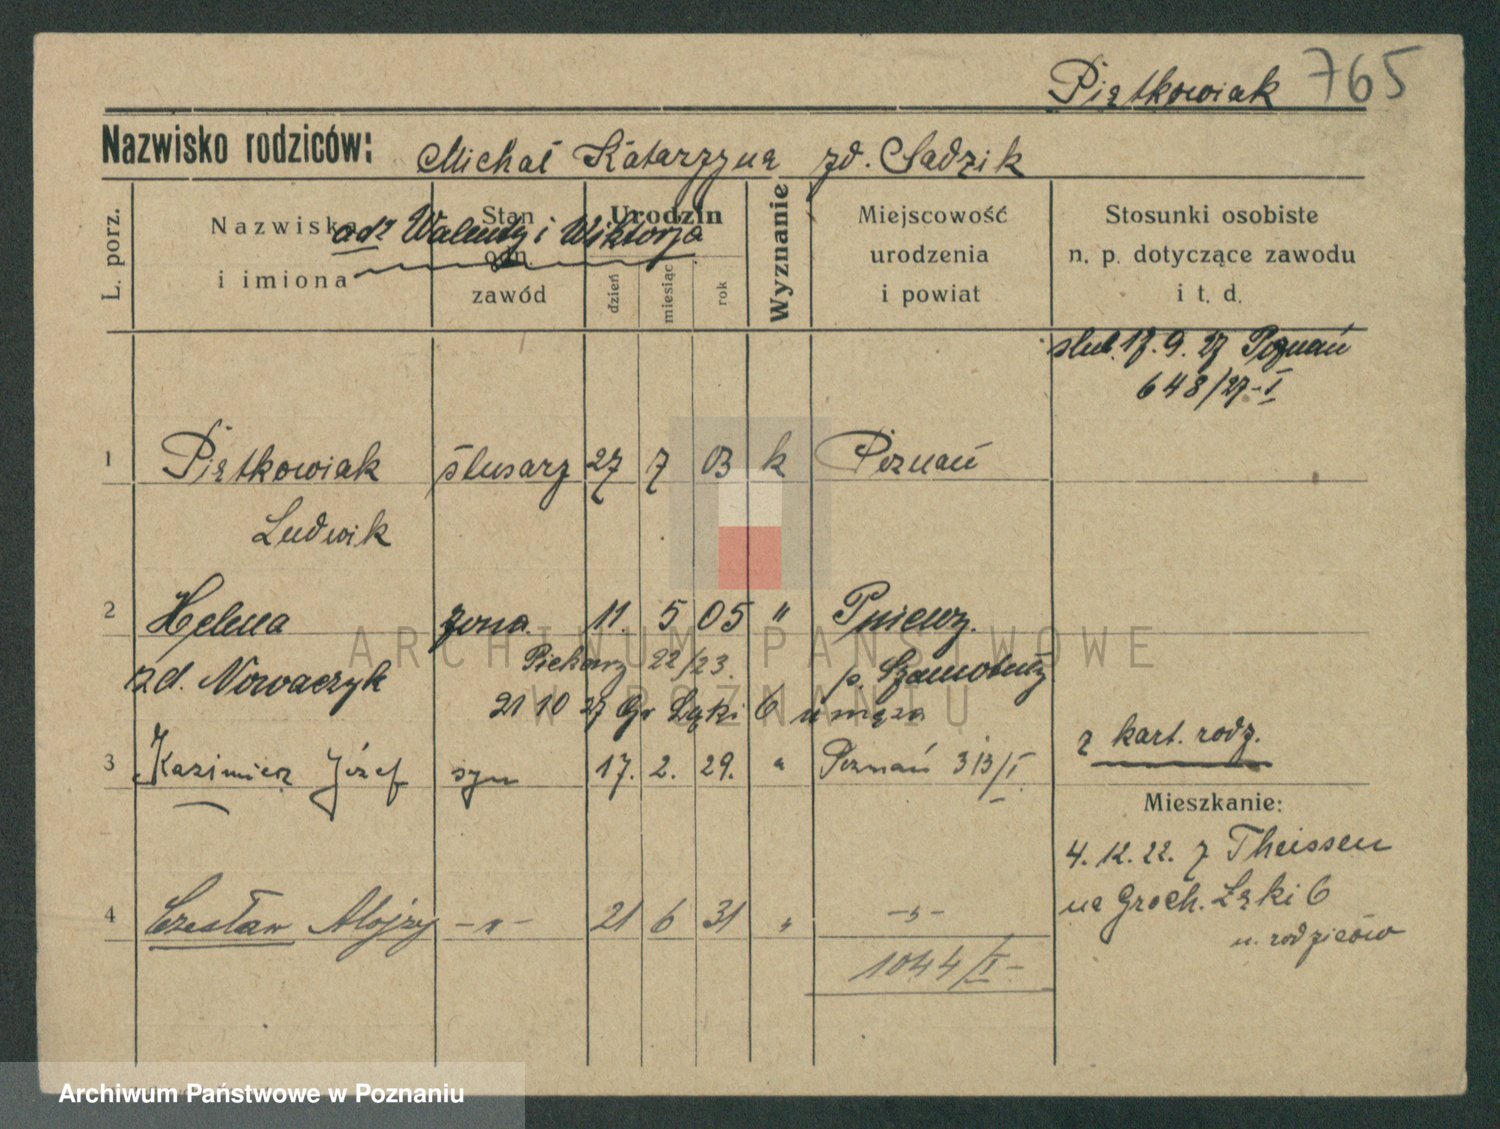 Piątkowiak 765
Nazwisko rodziców: Michał Katarzyna zd. Sadzik
L. porz.
Nazwiska
i imiona
ad2 Walenty i Wiktorja
Stan
zawód
Urodzin
dzień
miesiąc
rok
Wyznanie
Miejscowość
urodzenia
i powiat
Stosunki osobiste
n. p. dotyczące zawodu
i t. d.
ślub. 17. 9. 27 Poznań
648/27-I
1 Piątkowiak ślusarz 27 7 03 k Poznań
Ludwik
2 Helena żona. 11. 5 05 " Pniewy.
zd. Nowaczyk Piekary 22/23. p. Szamotuły
21 10 27 Gr Łąki 6 u męża
z kart. rodz.
3 Kazimierz Józef syn 17. 2. 29. " Poznań 313/I
Mieszkanie:
4. 12. 22. z Theissen
na Groch. Łąki 6
u. rodziców
4 Czesław Alojzy -"- 21 6 31 " -"-
1044/I-
ARCHIWUM PAŃSTWOWE
W POZNANIU
Archiwum Państwowe w Poznaniu